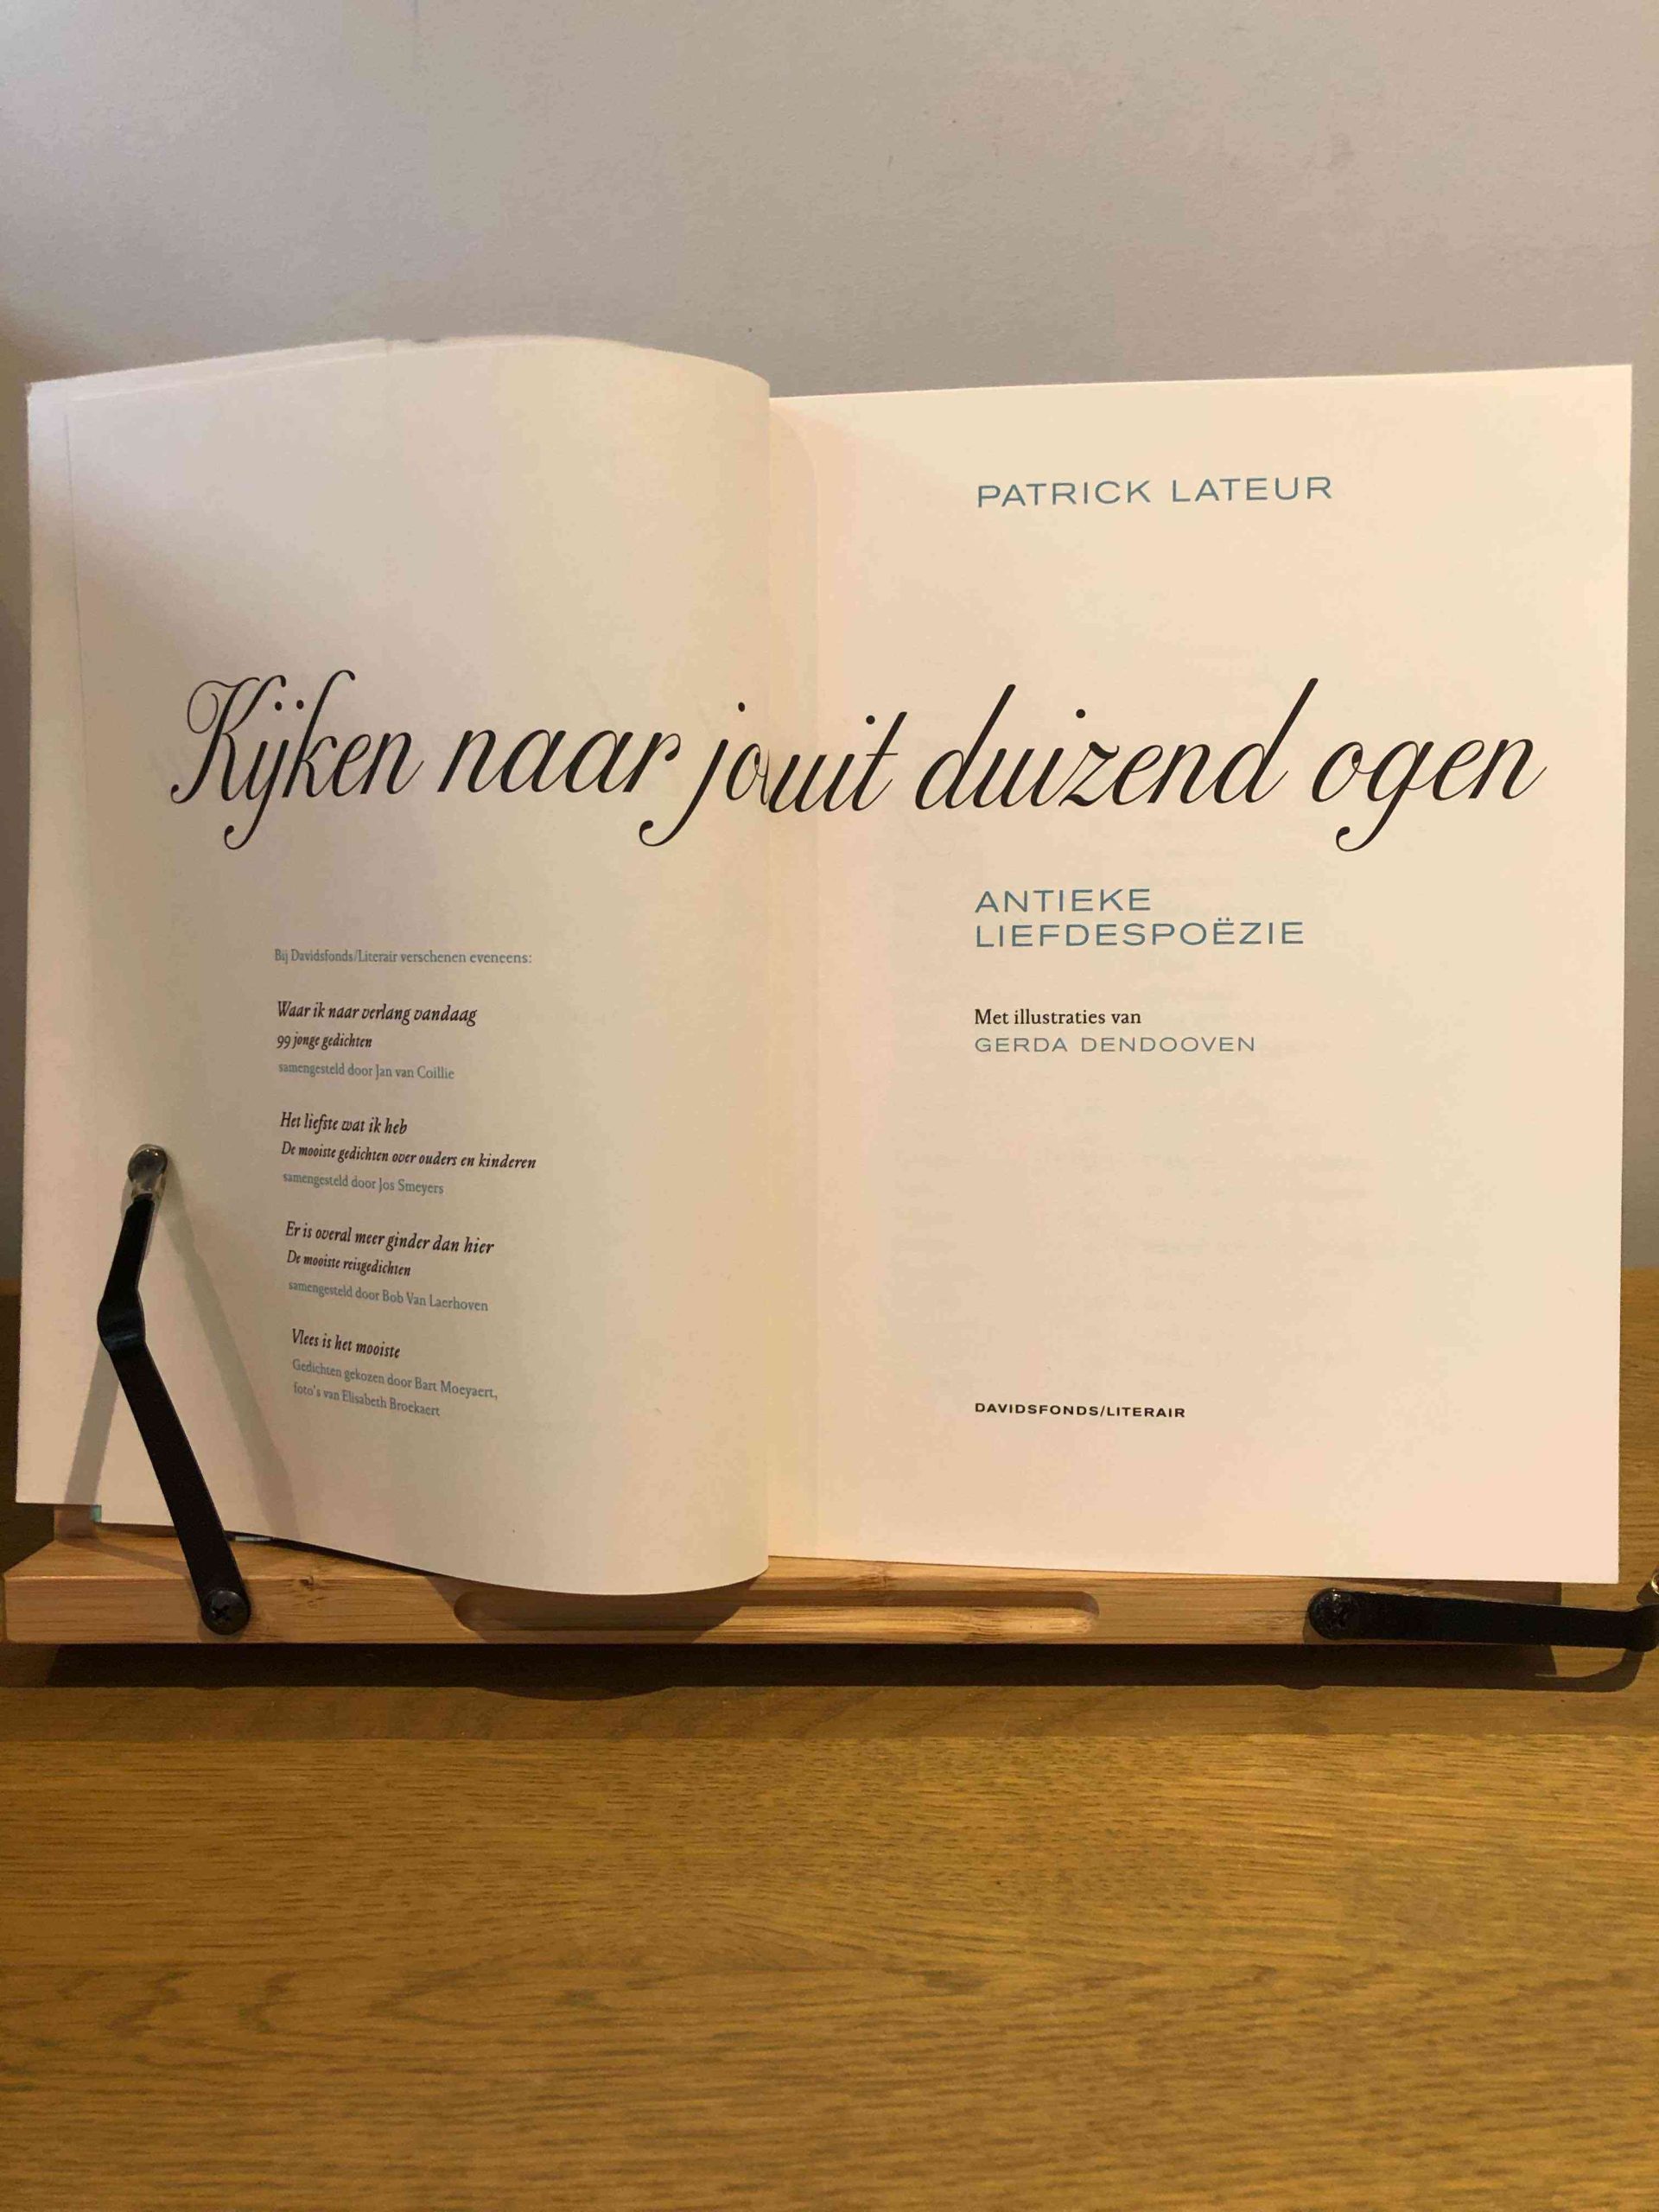 Kijken naar jou uit duizend ogen
Bij Davidsfonds/Literair verschenen eveneens:
Waar ik naar verlang vandaag
99 jonge gedichten
samengesteld door Jan van Coillie
Het liefste wat ik heb
De mooiste gedichten over ouders en kinderen
samengesteld door Jos Smeyers
Er is overal meer ginder dan hier
De mooiste reisgedichten
samengesteld door Bob Van Laerhoven
Vlees is het mooiste
Gedichten gekozen door Bart Moeyaert,
foto's van Elisabeth Broekaert
PATRICK LATEUR
ANTIEKE
LIEFDESPOËZIE
Met illustraties van
GERDA DENDOOVEN
DAVIDSFONDS/LITERAIR